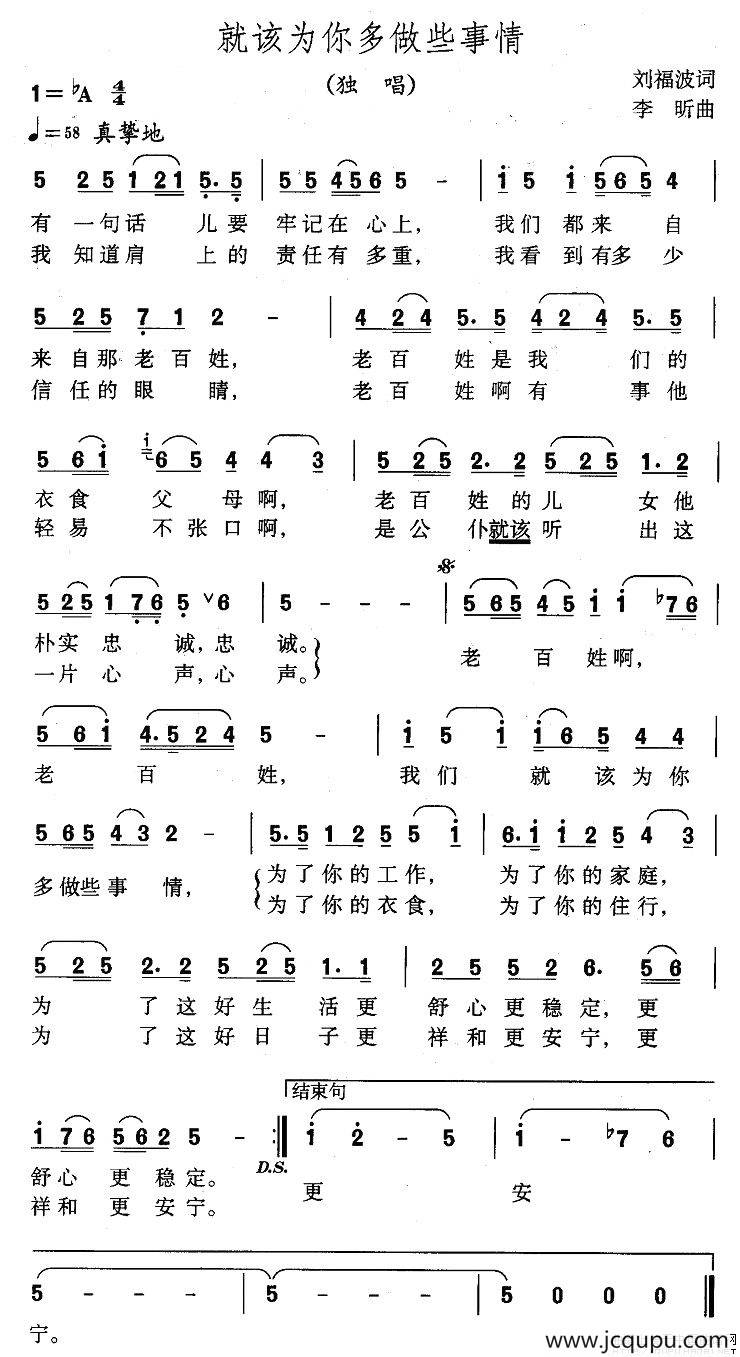 就该为你多做些事情
(独 唱)
刘福波词
李 昕曲
1=♭A 4/4
♩=58 真挚地
5 2 5 1 2 1 5. 5 | 5 5 4 5 6 5 5 - | i 5 i 5 6 5 4 |
有 一句话 儿要 牢记在 心上, 我们 都来 自
我 知道肩 上的 责任有 多重, 我看 到有多 少
5 2 5 7 1 2 - | 4 2 4 5. 5 4 2 4 5. 5 |
来 自那老百姓, 老百 姓是我 们的
信 任的眼 睛, 老百 姓啊有 事他
5 6 i i 6 5 4 4 3 | 5 2 5 2. 2 5 2 5 1. 2 |
衣食 父 母啊, 老百 姓的儿 女他
轻易 不张口啊, 是公 仆就该听 出这
5 2 5 1 7 6 5 ∨ 6 | 5 - - - | 5 6 5 4 5 i i ♭7 6 |
朴实 忠 诚,忠 诚。 老 百 姓啊,
一片 心 声,心 声。
5 6 i 4. 5 2 4 5 - | i 5 i i 6 5 4 4 |
老 百 姓, 我们 就 该为你
5 6 5 4 3 2 - | 5. 5 1 2 5 5 i | 6. i i 2 5 4 3 |
多做些事 情, 为了你的工作, 为了你的家庭,
为了你的衣食, 为了你的住行,
5 2 5 2. 2 5 2 5 1. 1 | 2 5 5 2 6. 5 6 |
为 了这好生 活更 舒心更稳定,更
为 了这好日 子更 祥和更安宁,更
结束句
i 7 6 5 6 2 5 - :‖ i 2 - 5 | i - ♭7 6 |
D.S.
舒心 更 稳定。 更 安
祥和 更 安宁。
5 - - - | 5 - - - | 5 0 0 0 ‖
宁。
www.jcqupu.com